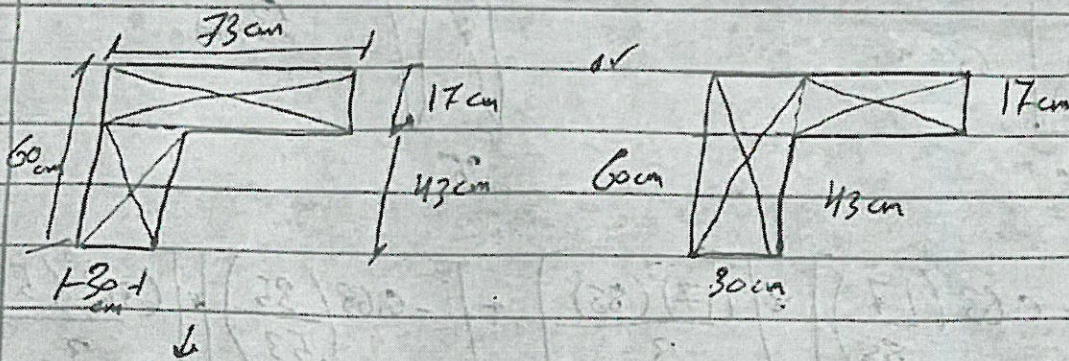 73cm
17cm
60cm
43cm
30cm
17cm
60cm
43cm
30cm